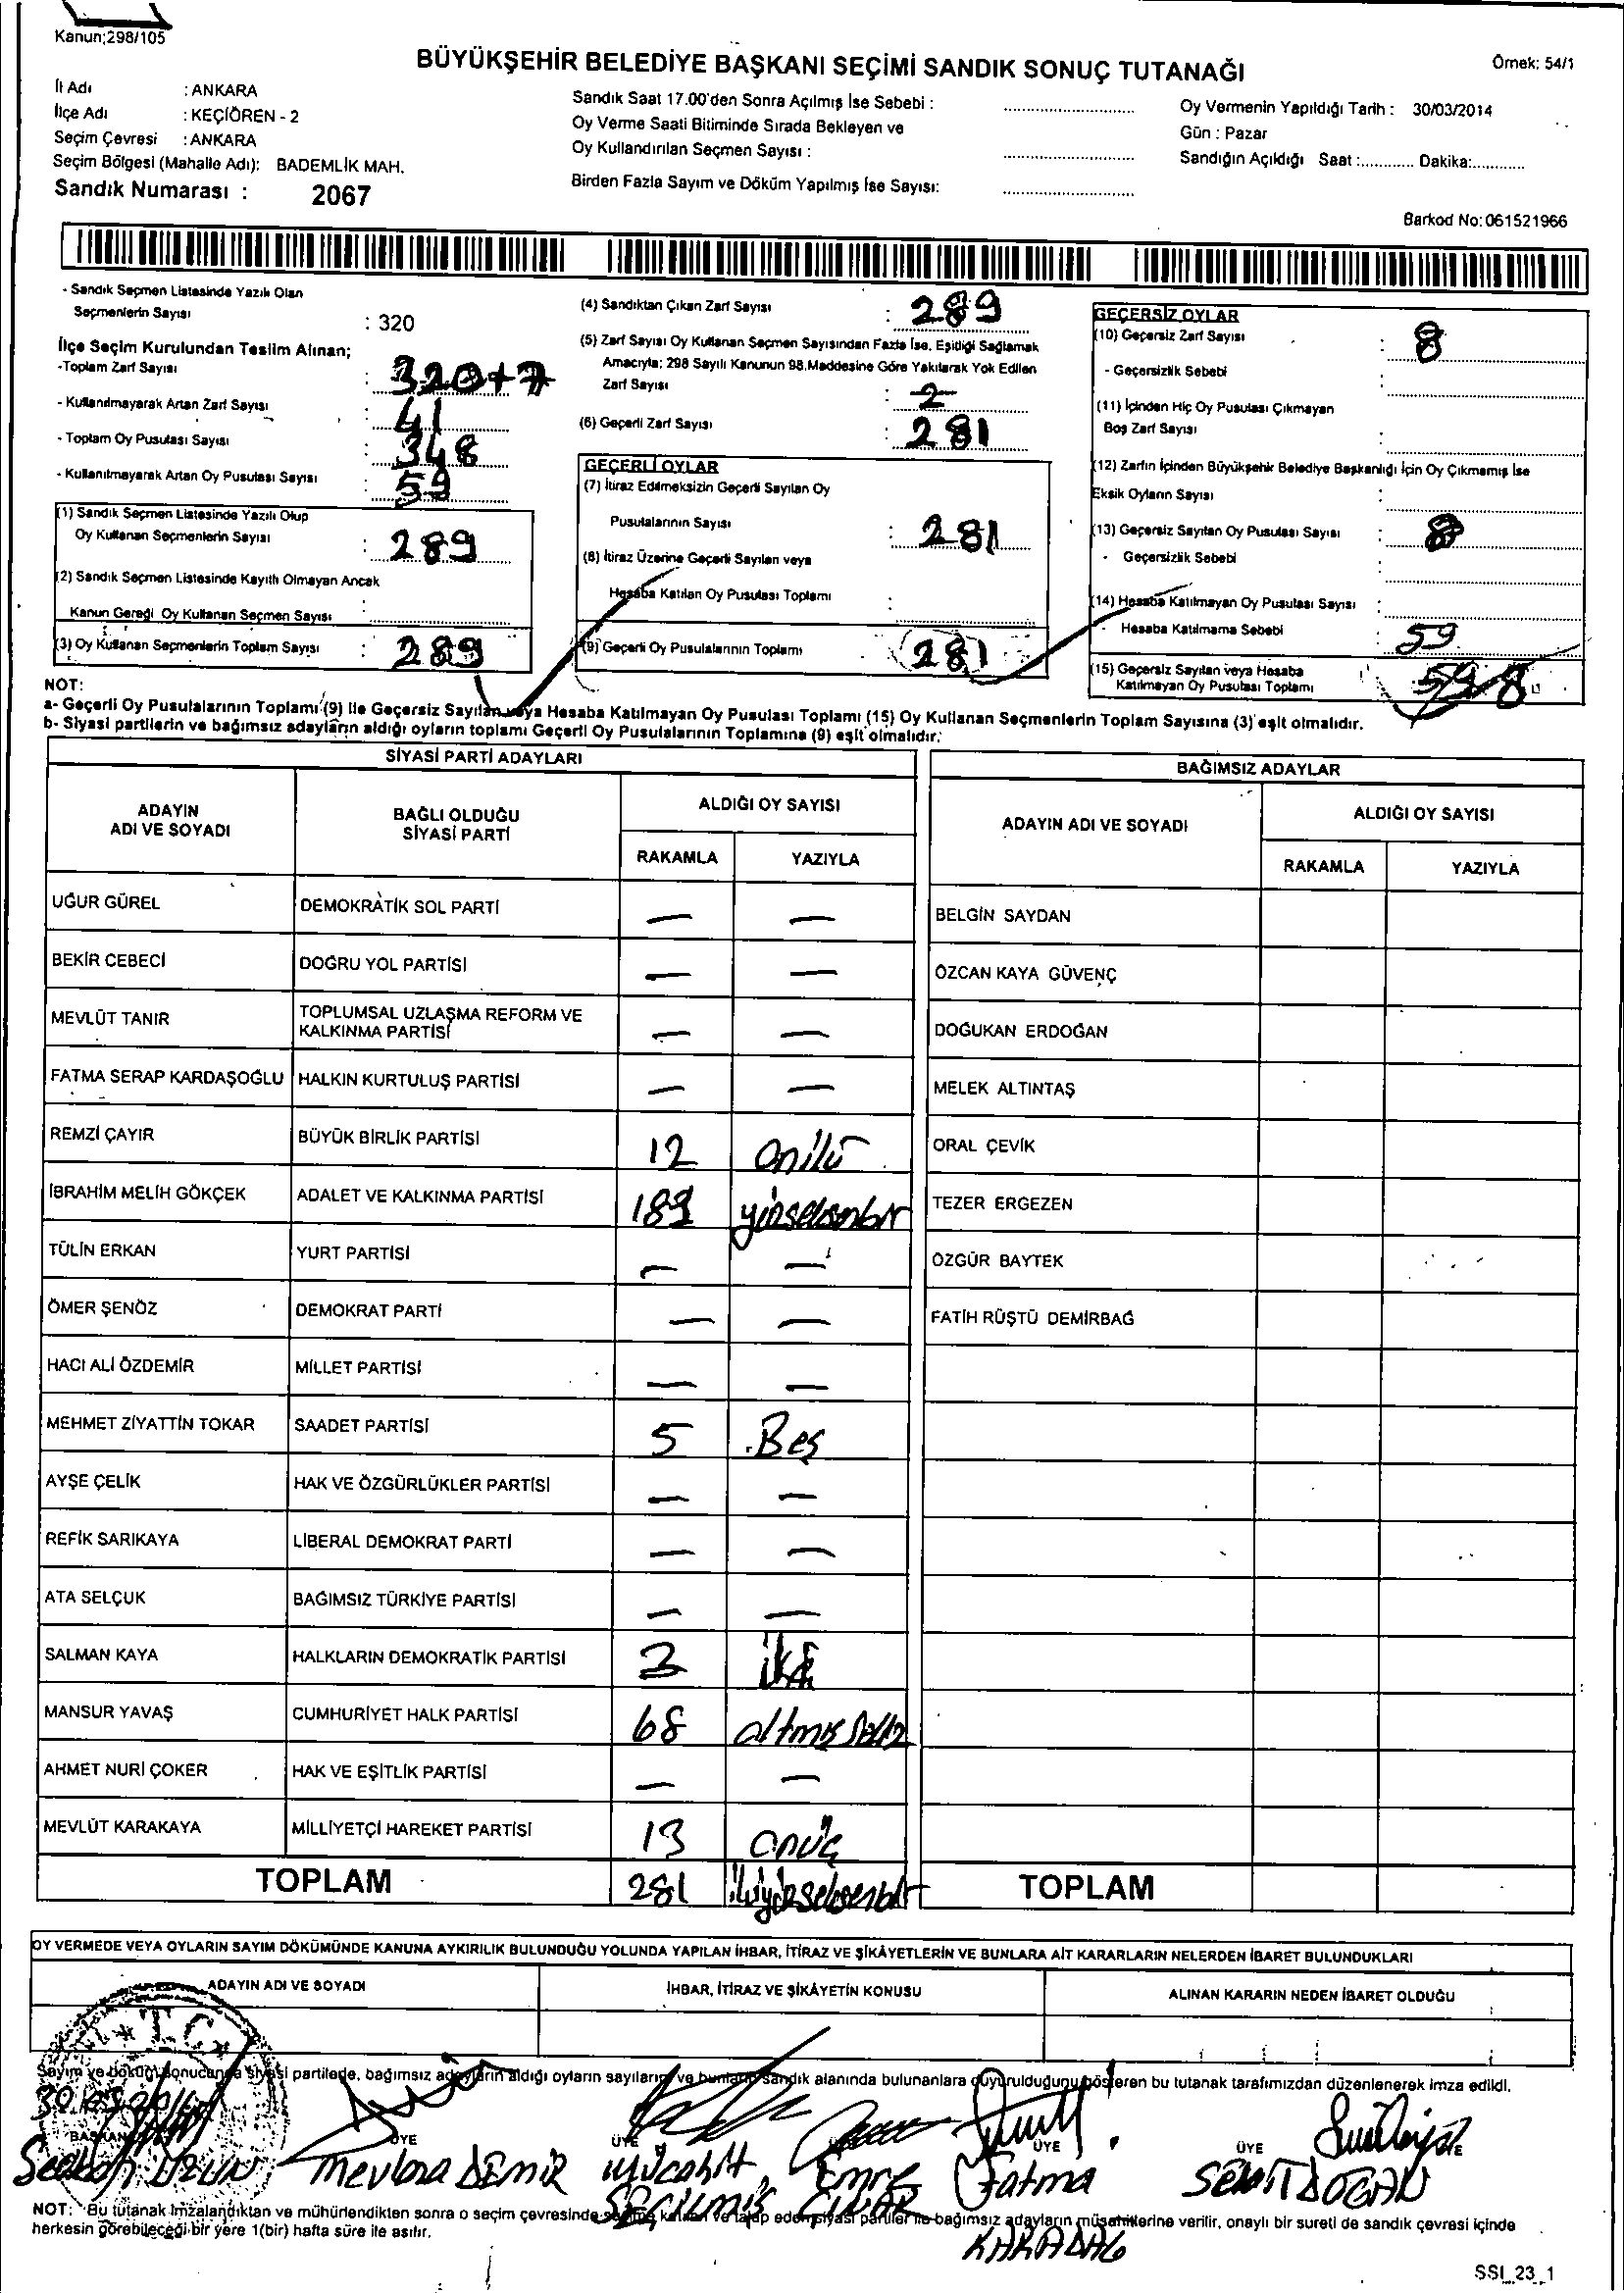 Kanun;298/105
BÜYÜKŞEHİR BELEDİYE BAŞKANI SEÇİMİ SANDIK SONUÇ TUTANAĞI
Örnek: 54/1
İl Adı : ANKARA
İlçe Adı : KEÇİÖREN - 2
Seçim Çevresi : ANKARA
Seçim Bölgesi (Mahalle Adı): BADEMLİK MAH.
Sandık Numarası : 2067
Sandık Saat 17.00'den Sonra Açılmış İse Sebebi :
Oy Verme Saati Bitiminde Sırada Bekleyen ve
Oy Kullandırılan Seçmen Sayısı :
Birden Fazla Sayım ve Döküm Yapılmış İse Sayısı:
Oy Vermenin Yapıldığı Tarih : 30/03/2014
Gün : Pazar
Sandığın Açıldığı Saat :............ Dakika:............
Barkod No: 061521966
- Sandık Seçmen Listesinde Yazılı Olan
Seçmenlerin Sayısı : 320
İlçe Seçim Kurulundan Teslim Alınan;
-Toplam Zarf Sayısı : 320+7
- Kullanılmayarak Artan Zarf Sayısı : 41
- Toplam Oy Pusulası Sayısı : 348
- Kullanılmayarak Artan Oy Pusulası Sayısı : 59
(1) Sandık Seçmen Listesinde Yazılı Olup
Oy Kullanan Seçmenlerin Sayısı : 289
(2) Sandık Seçmen Listesinde Kayıtlı Olmayan Ancak
Kanun Gereği Oy Kullanan Seçmen Sayısı :
(3) Oy Kullanan Seçmenlerin Toplam Sayısı : 289
(4) Sandıktan Çıkan Zarf Sayısı : 289
(5) Zarf Sayısı Oy Kullanan Seçmen Sayısından Fazla İse, Eşitliği Sağlamak
Amacıyla; 298 Sayılı Kanunun 98.Maddesine Göre Yakılarak Yok Edilen
Zarf Sayısı : 2
(6) Geçerli Zarf Sayısı : 281
GEÇERLİ OYLAR
(7) İtiraz Edilmeksizin Geçerli Sayılan Oy
Pusulalarının Sayısı : 281
(8) İtiraz Üzerine Geçerli Sayılan veya
Hesaba Katılan Oy Pusulası Toplamı :
(9) Geçerli Oy Pusulalarının Toplamı : 281
GEÇERSİZ OYLAR
(10) Geçersiz Zarf Sayısı : 8
- Geçersizlik Sebebi
(11) İçinden Hiç Oy Pusulası Çıkmayan
Boş Zarf Sayısı :
(12) Zarfın İçinden Büyükşehir Belediye Başkanlığı İçin Oy Çıkmamış İse
Eksik Oyların Sayısı :
(13) Geçersiz Sayılan Oy Pusulası Sayısı : 8
- Geçersizlik Sebebi
(14) Hesaba Katılmayan Oy Pusulası Sayısı :
- Hesaba Katılmama Sebebi : 59
(15) Geçersiz Sayılan veya Hesaba
Katılmayan Oy Pusulası Toplamı : 59 8
NOT:
a- Geçerli Oy Pusulalarının Toplamı (9) İle Geçersiz Sayılan veya Hesaba Katılmayan Oy Pusulası Toplamı (15) Oy Kullanan Seçmenlerin Toplam Sayısına (3) eşit olmalıdır.
b- Siyasi partilerin ve bağımsız adayların aldığı oyların toplamı Geçerli Oy Pusulalarının Toplamına (9) eşit olmalıdır.
SİYASİ PARTİ ADAYLARI
ADAYIN ADI VE SOYADI BAĞLI OLDUĞU SİYASİ PARTİ ALDIĞI OY SAYISI
RAKAMLA YAZIYLA
UĞUR GÜREL DEMOKRATİK SOL PARTİ — —
BEKİR CEBECİ DOĞRU YOL PARTİSİ — —
MEVLÜT TANIR TOPLUMSAL UZLAŞMA REFORM VE KALKINMA PARTİSİ — —
FATMA SERAP KARDAŞOĞLU HALKIN KURTULUŞ PARTİSİ — —
REMZİ ÇAYIR BÜYÜK BİRLİK PARTİSİ 12
İBRAHİM MELİH GÖKÇEK ADALET VE KALKINMA PARTİSİ
TÜLİN ERKAN YURT PARTİSİ — —
ÖMER ŞENÖZ DEMOKRAT PARTİ — —
HACI ALİ ÖZDEMİR MİLLET PARTİSİ — —
MEHMET ZİYATTİN TOKAR SAADET PARTİSİ 5 Beş
AYŞE ÇELİK HAK VE ÖZGÜRLÜKLER PARTİSİ — —
REFİK SARIKAYA LİBERAL DEMOKRAT PARTİ — —
ATA SELÇUK BAĞIMSIZ TÜRKİYE PARTİSİ — —
SALMAN KAYA HALKLARIN DEMOKRATİK PARTİSİ
MANSUR YAVAŞ CUMHURİYET HALK PARTİSİ 68 altmış
AHMET NURİ ÇOKER HAK VE EŞİTLİK PARTİSİ — —
MEVLÜT KARAKAYA MİLLİYETÇİ HAREKET PARTİSİ 13 onüç
TOPLAM 281 ikiyüzseksenbir
BAĞIMSIZ ADAYLAR
ADAYIN ADI VE SOYADI ALDIĞI OY SAYISI
RAKAMLA YAZIYLA
BELGİN SAYDAN
ÖZCAN KAYA GÜVENÇ
DOĞUKAN ERDOĞAN
MELEK ALTINTAŞ
ORAL ÇEVİK
TEZER ERGEZEN
ÖZGÜR BAYTEK
FATİH RÜŞTÜ DEMİRBAĞ
TOPLAM
OY VERMEDE VEYA OYLARIN SAYIM DÖKÜMÜNDE KANUNA AYKIRILIK BULUNDUĞU YOLUNDA YAPILAN İHBAR, İTİRAZ VE ŞİKÂYETLERİN VE BUNLARA AİT KARARLARIN NELERDEN İBARET BULUNDUKLARI
ADAYIN ADI VE SOYADI İHBAR, İTİRAZ VE ŞİKÂYETİN KONUSU ALINAN KARARIN NEDEN İBARET OLDUĞU
T.C.
Sayım ve döküm sonucunda siyasi partilerle, bağımsız adayların aldığı oyların sayılarını ve bunların sandık alanında bulunanlara duyurulduğunu gösteren bu tutanak tarafımızdan düzenlenerek imza edildi.
BAŞKAN ÜYE ÜYE ÜYE ÜYE
UZUN Mevlana DEMİR Mücahit SEÇİLMİŞ Emre ÇINAR Fatma KARADAĞ SEMİT DOĞAN
NOT: Bu tutanak imzalandıktan ve mühürlendikten sonra o seçim çevresinde seçime katılan ve talep eden siyasi partiler ile bağımsız adayların müşahitlerine verilir, onaylı bir sureti de sandık çevresi içinde
herkesin görebileceği bir yere 1(bir) hafta süre ile asılır.
SSI_23_1